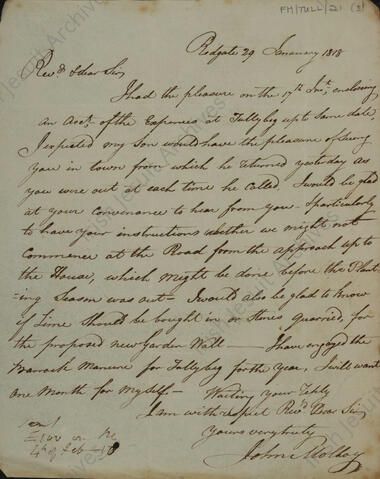 FM/TULL/21 (2)
Redgate 29 January 1818
Revd. & dear Sir,
I had the pleasure on the 17th Inst. enclosing
an Acct. of the Expences at Tullybeg up to same date,
I expected my Son would have the pleasure of seeing
you in town from which he returned yesterday as
you were out at each time he called, I would be glad
at your convenance to hear from you & particularly
to have your instructions whether we might not
commence at the Road from the approach up to
the House, which might be done before the Plant
=ing Season was out - I would also be glad to know
if Lime should be bought in or Stones Quarried, for
the proposed new Garden Wall - I have engaged the
Barrack Manure for Tullybeg for the year, I will want
one Month for Myself - Waiting your Reply
I am with respect Revd. Dear Sir
Yours very truly
John Molloy
£100 on the
4th of Feb - 18
Irish Jesuit Archives